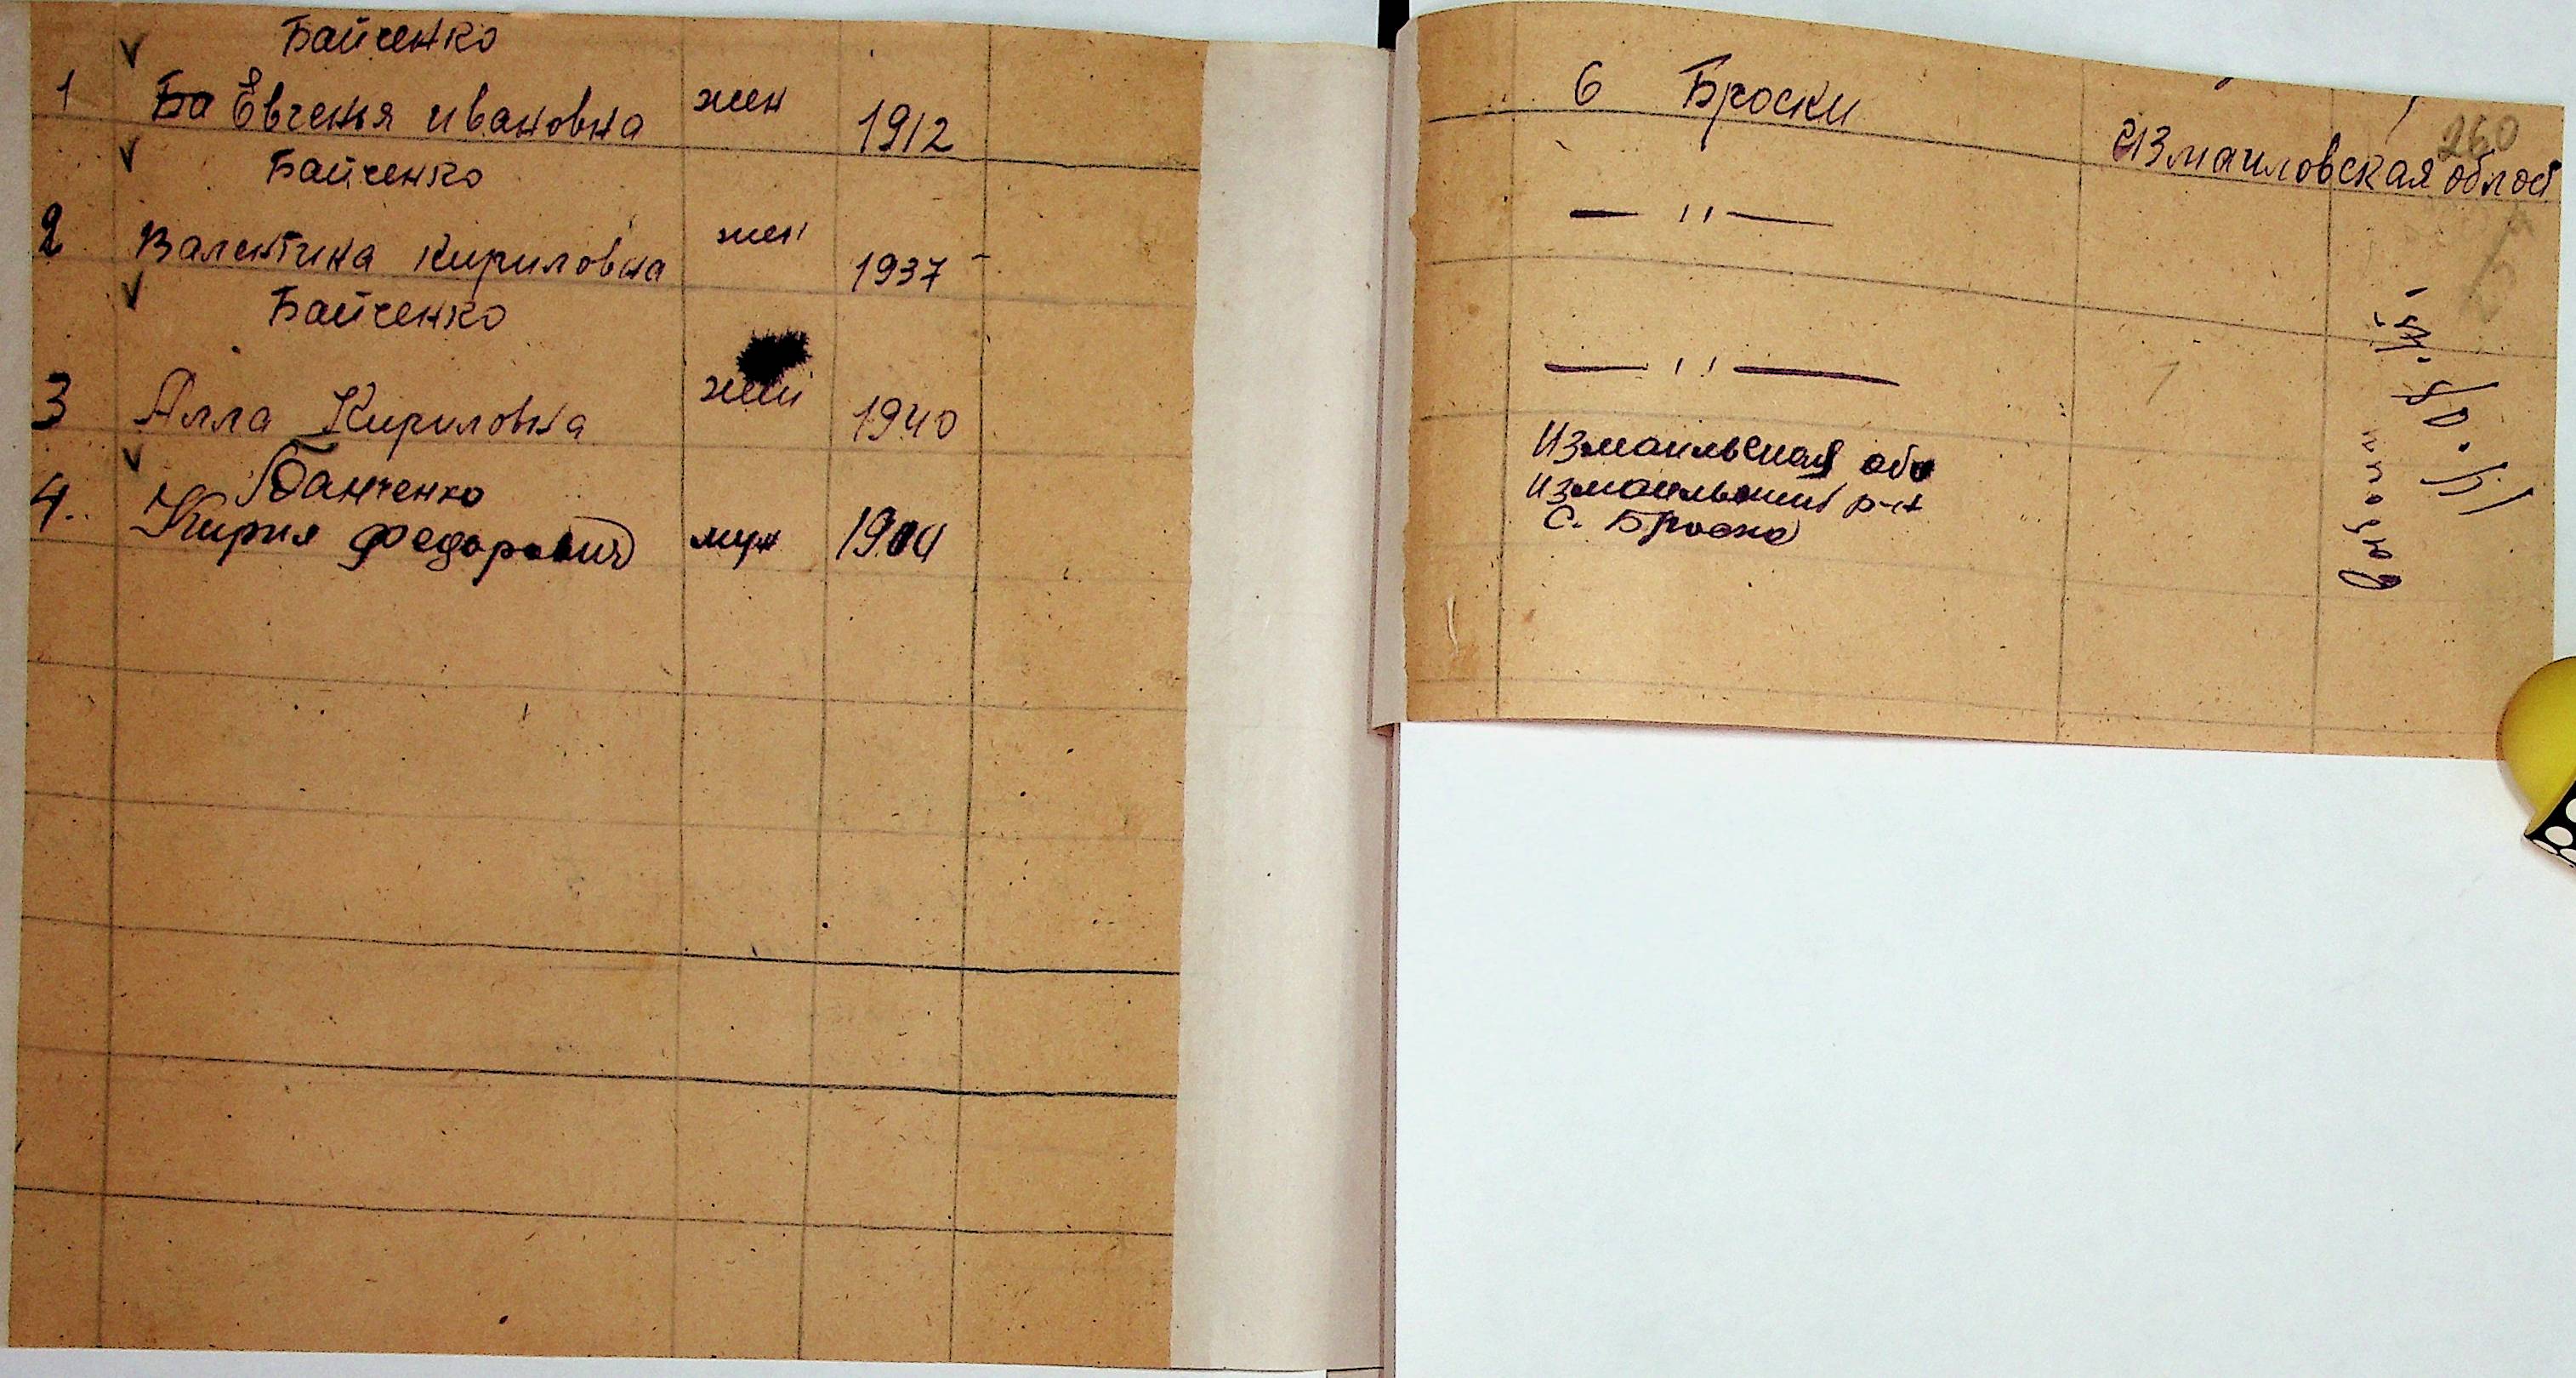 Байченко
1 Ба Евгенья ивановна жен 1912
Байченко
2 Валентина Кириловна жен 1937
Байченко
3 Алла Кириловна жен 1940
Банченко
4. Кирил Федорович муж 1904
6 Броски Измаиловская облост
260
— " —
— " —
Измаильская обл
Измаильский р-н
с. Броско